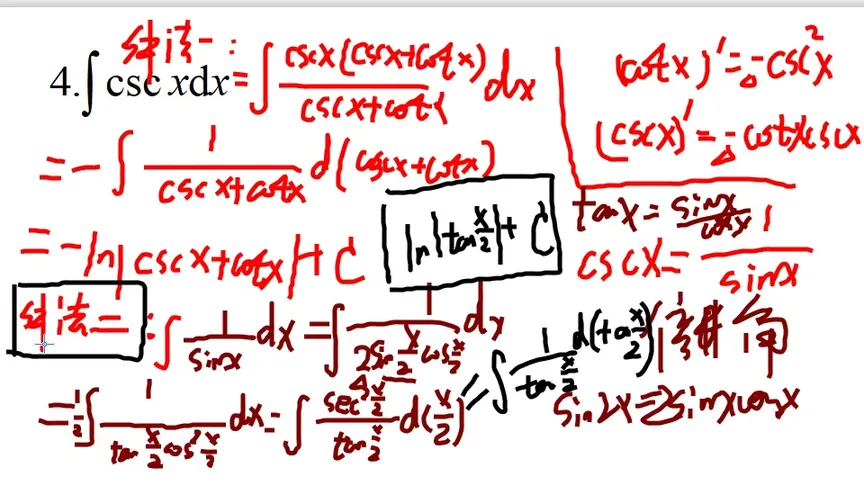 结法一:
4.∫ csc xdx = ∫ cscx(cscx+cotx)/(cscx+cotx) dx
= -∫ 1/(cscx+cotx) d(cscx+cotx)
= -ln|cscx+cotx|+C
(cotx)'=-csc²x
(cscx)'=-cotxcscx
tanx=sinx/cosx
cscx=1/sinx
ln|tan x/2|+C
结法二: ∫ 1/sinx dx = ∫ 1/(2sin x/2 cos x/2) dx
= 1/2 ∫ 1/(tan x/2 cos² x/2) dx = ∫ (sec² x/2)/(tan x/2) d(x/2) = ∫ 1/(tan x/2) d(tan x/2)
倍角
sin2x=2sinxcosx